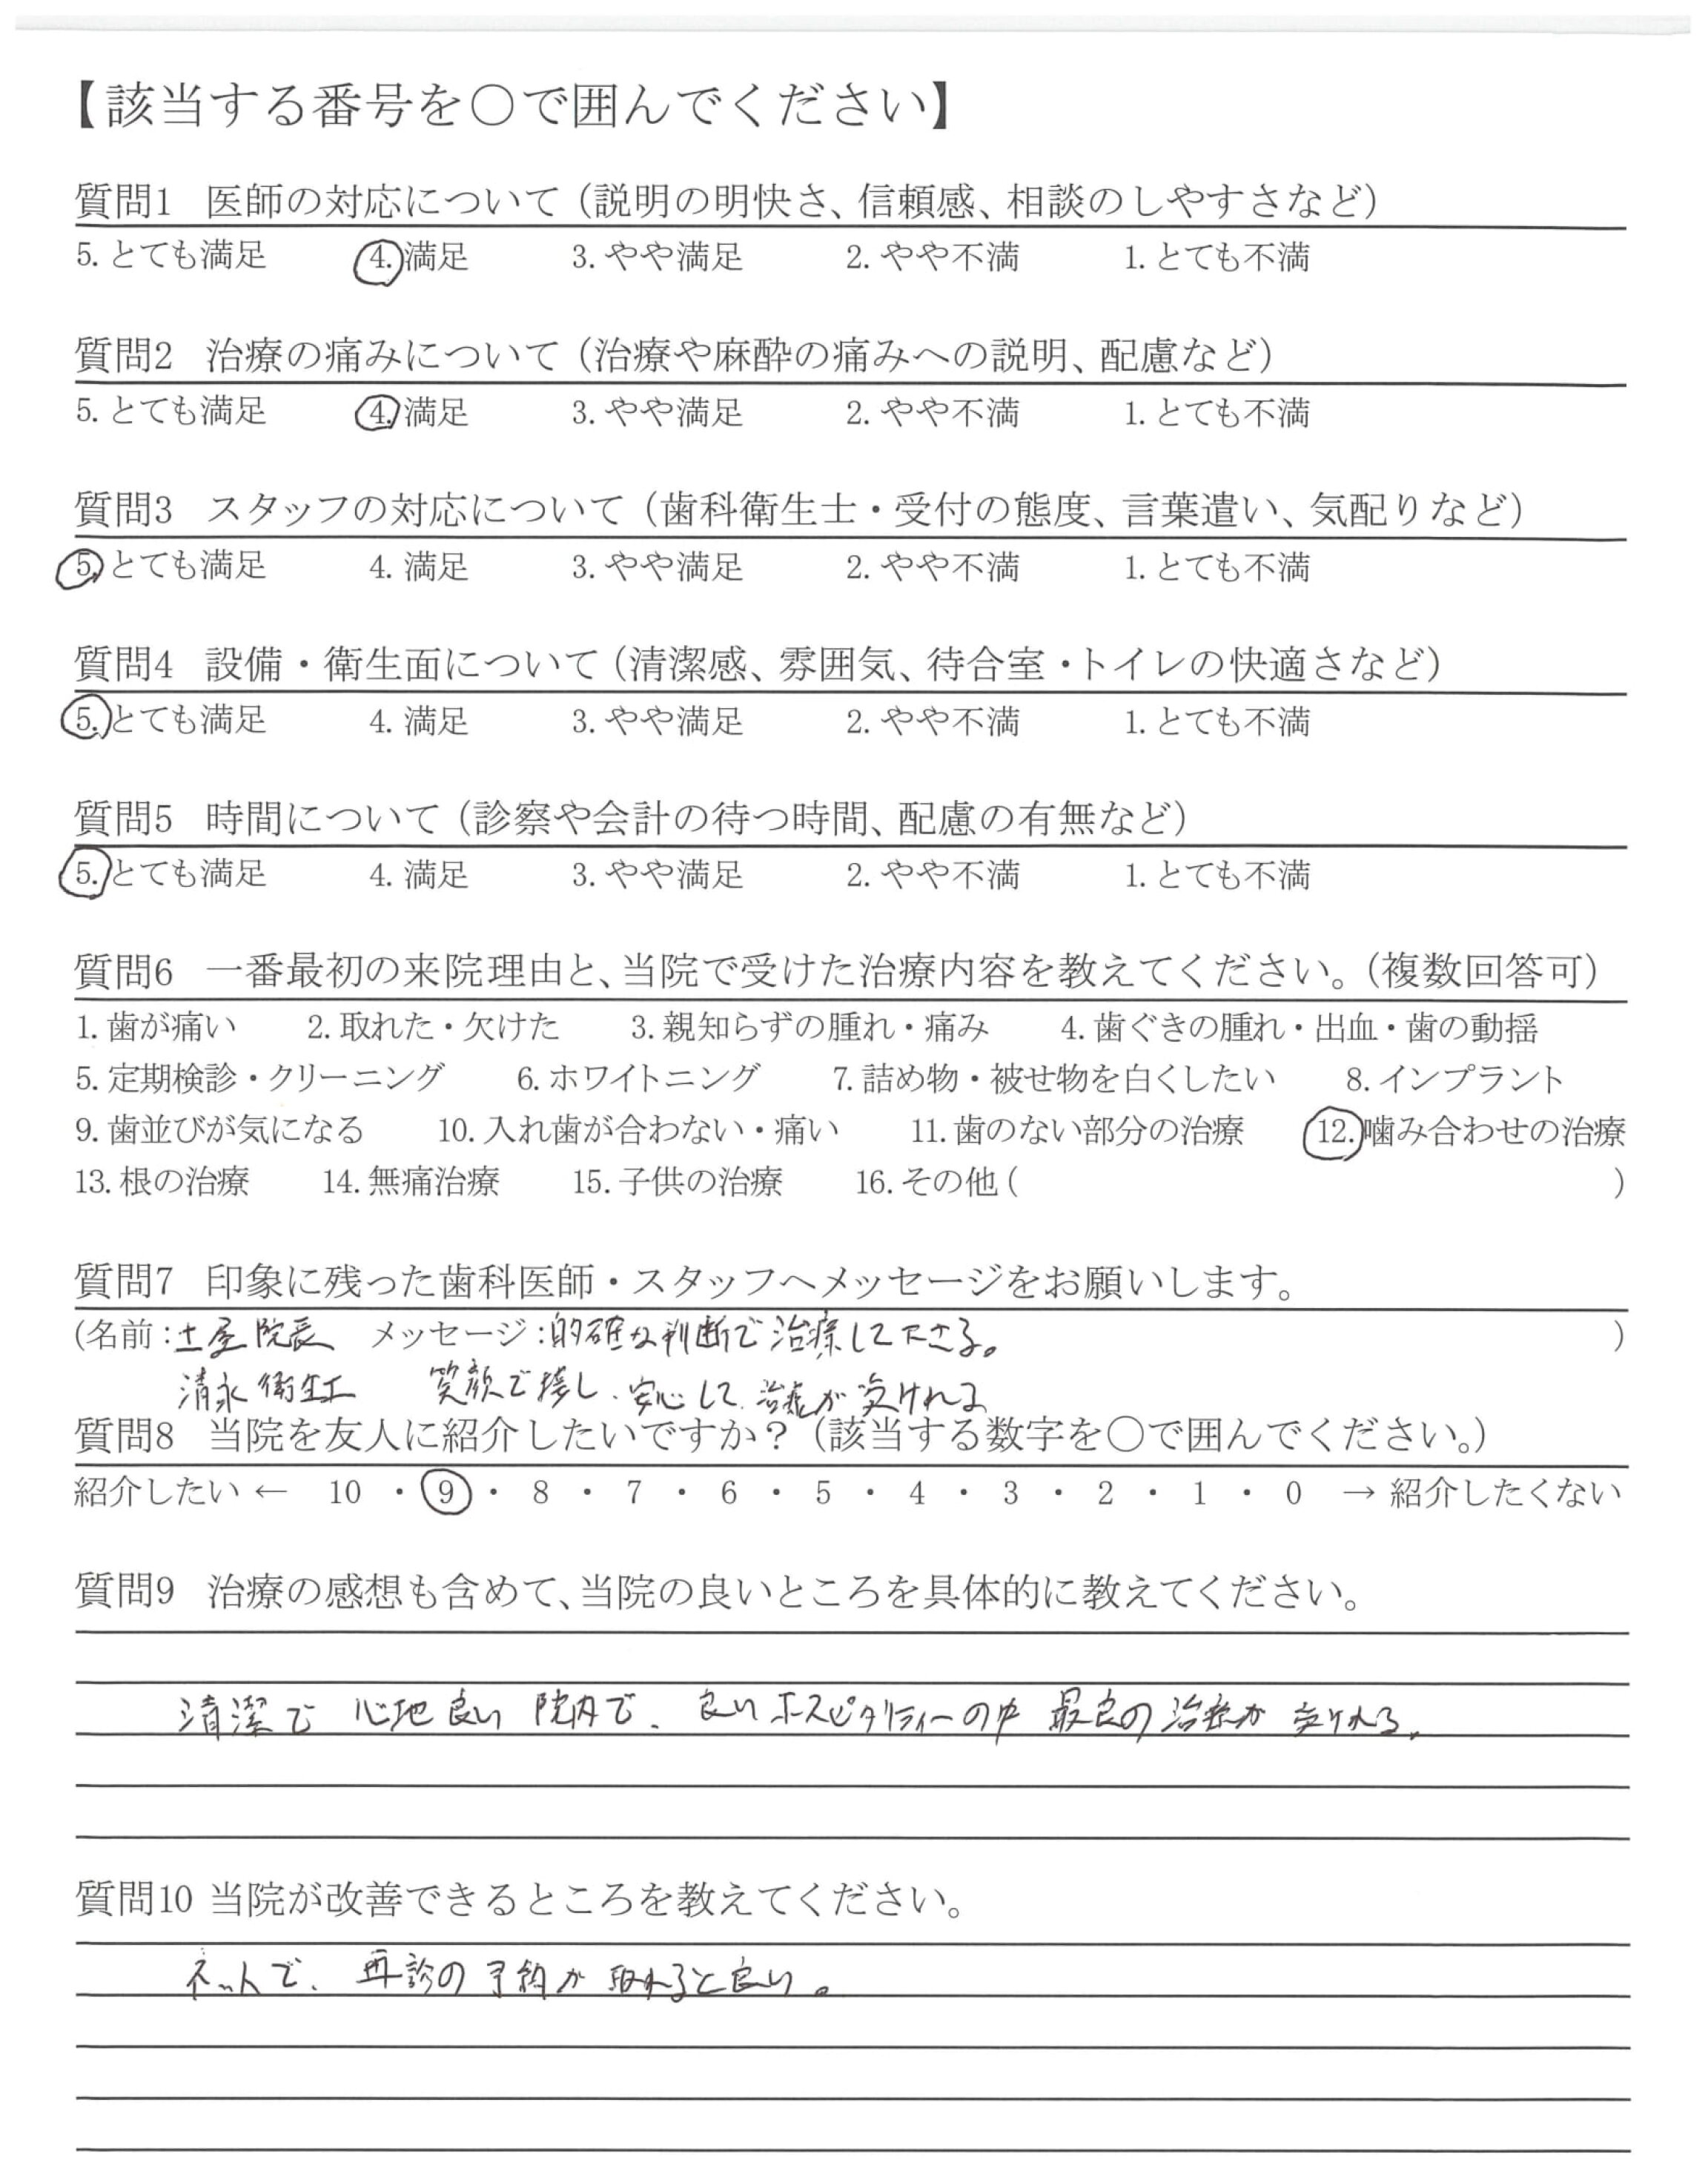 【該当する番号を〇で囲んでください】
質問1 医師の対応について（説明の明快さ、信頼感、相談のしやすさなど）
5. とても満足 4. 満足 3. やや満足 2. やや不満 1. とても不満
質問2 治療の痛みについて（治療や麻酔の痛みへの説明、配慮など）
5. とても満足 4. 満足 3. やや満足 2. やや不満 1. とても不満
質問3 スタッフの対応について（歯科衛生士・受付の態度、言葉遣い、気配りなど）
5. とても満足 4. 満足 3. やや満足 2. やや不満 1. とても不満
質問4 設備・衛生面について（清潔感、雰囲気、待合室・トイレの快適さなど）
5. とても満足 4. 満足 3. やや満足 2. やや不満 1. とても不満
質問5 時間について（診察や会計の待つ時間、配慮の有無など）
5. とても満足 4. 満足 3. やや満足 2. やや不満 1. とても不満
質問6 一番最初の来院理由と、当院で受けた治療内容を教えてください。（複数回答可）
1. 歯が痛い 2. 取れた・欠けた 3. 親知らずの腫れ・痛み 4. 歯ぐきの腫れ・出血・歯の動揺
5. 定期検診・クリーニング 6. ホワイトニング 7. 詰め物・被せ物を白くしたい 8. インプラント
9. 歯並びが気になる 10. 入れ歯が合わない・痛い 11. 歯のない部分の治療 12. 噛み合わせの治療
13. 根の治療 14. 無痛治療 15. 子供の治療 16. その他（ ）
質問7 印象に残った歯科医師・スタッフへメッセージをお願いします。
(名前：土屋院長 メッセージ：的確な判断で治療して下さる。 )
清永衛生士 笑顔で接し、安心して、治療が受けれる
質問8 当院を友人に紹介したいですか？（該当する数字を〇で囲んでください。）
紹介したい ← 10 ・ 9 ・ 8 ・ 7 ・ 6 ・ 5 ・ 4 ・ 3 ・ 2 ・ 1 ・ 0 → 紹介したくない
質問9 治療の感想も含めて、当院の良いところを具体的に教えてください。
清潔で 心地良い 院内で、良いホスピタリティーの中 最良の治療が 受けれる。
質問10 当院が改善できるところを教えてください。
ネットで、再診の予約が取れると良い。